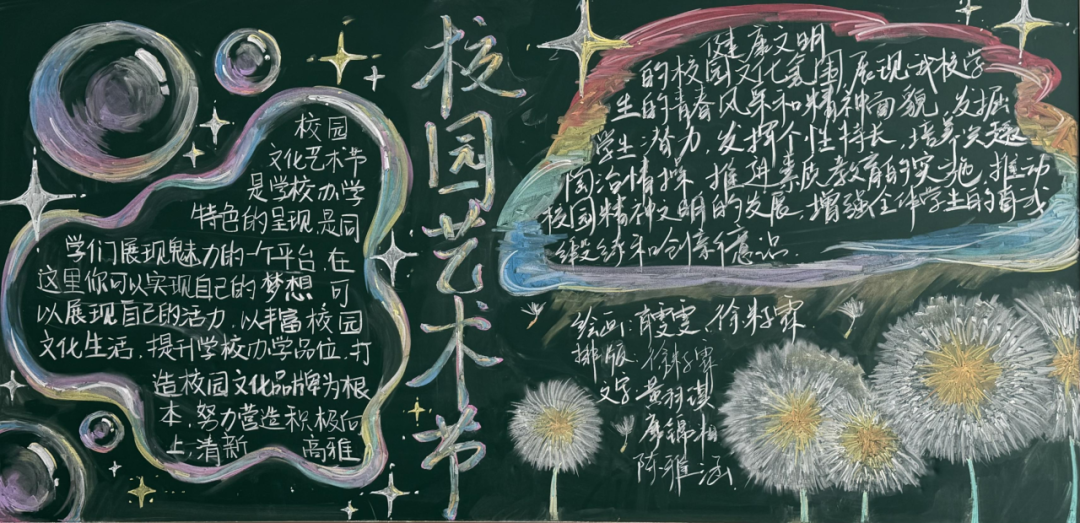 校园艺术节
校园
文化艺术节
是学校办学
特色的呈现,是同
学们展现魅力的一个平台,在
这里你可以实现自己的梦想,可
以展现自己的活力,以丰富校园
文化生活,提升学校办学品位,打
造校园文化品牌为根
本,努力营造积极向
上,清新 高雅
健康文明
的校园文化氛围,展现我校学
生的青春风采和精神面貌,发掘
学生潜力,发挥个性特长,培养兴趣
陶冶情操,推进素质教育的实施,推动
校园精神文明的发展,增强全体学生的自我
锻练和创新意识.
绘画: 雯雯、徐
排版: 徐
文字: 黄羽琪
唐锦
陈雅涵